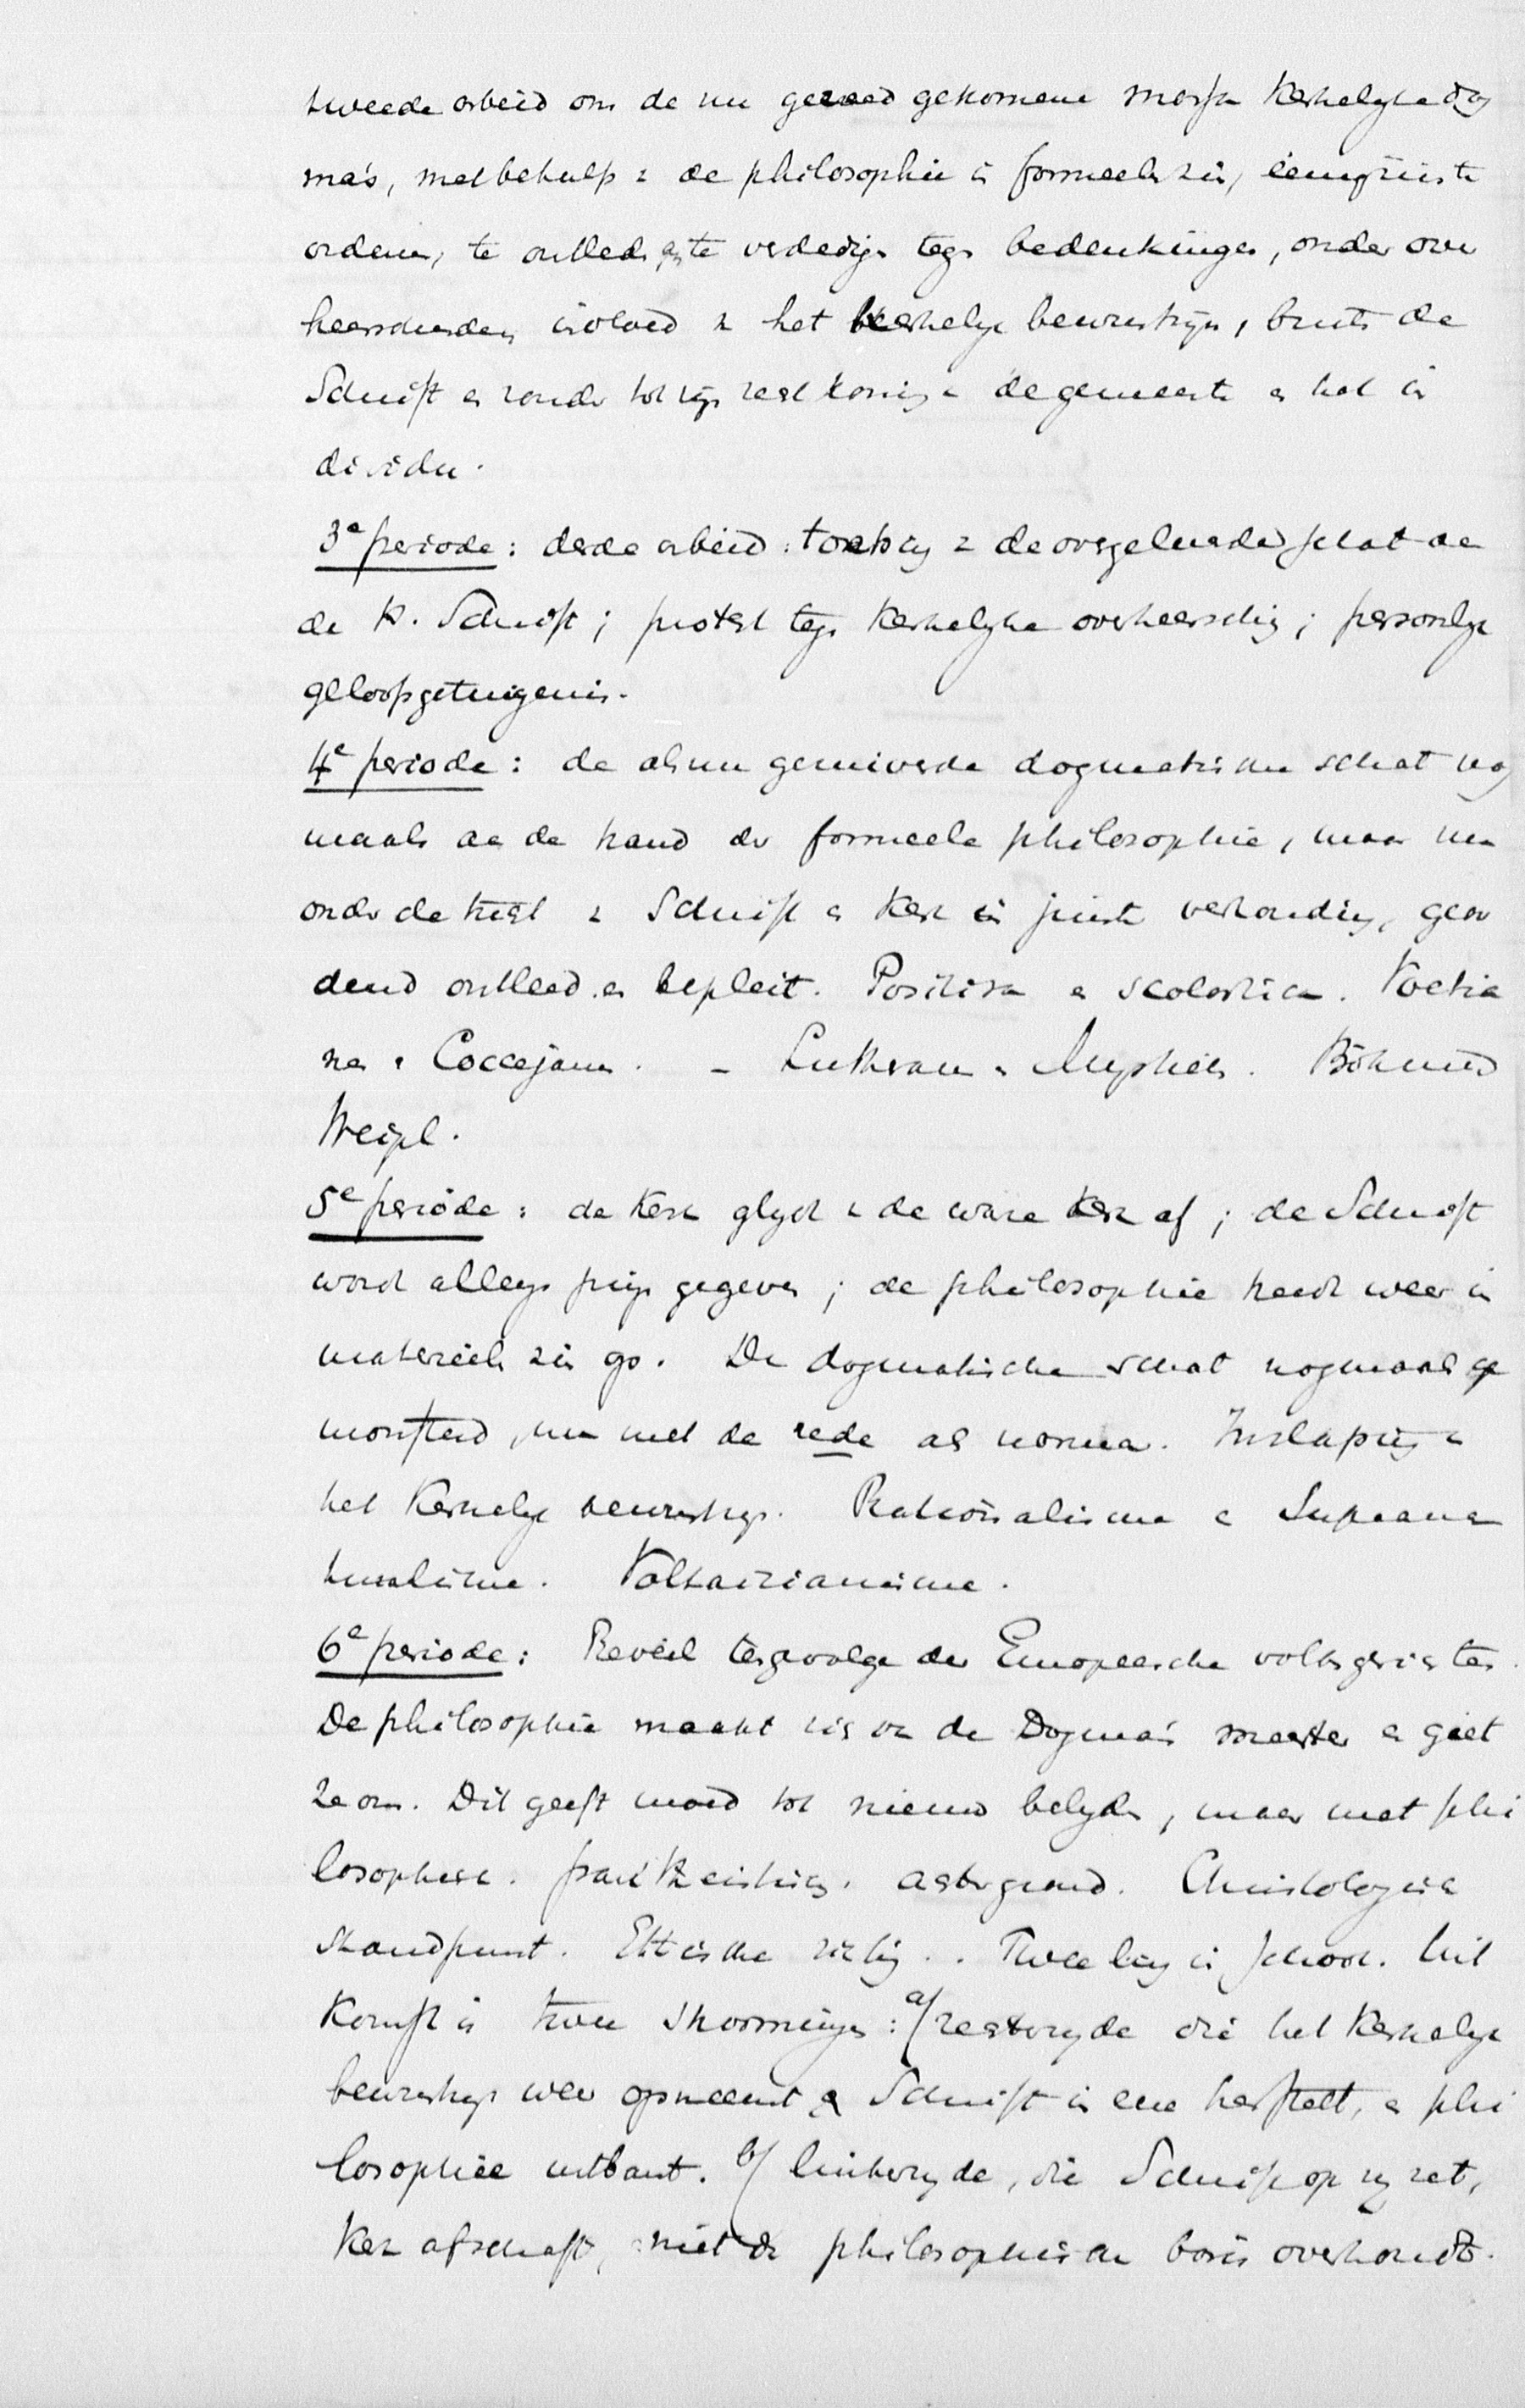 tweede arbeid om de nu gereed gekomene massa Kerkelyke dog
ma's, met behulp v de philosophie in formeelen zin,
ordenen, te ontleden en te verdedigen tegen bedenkingen, onder over
heerschenden invloed v het kerkelyk bewustzyn, buiten de
Schrift en zonder tot zyn recht koming v de gemeente en het in
dividu.
3e periode: derde arbeid: toetsing v de overgeleverden schat aan
de H. Schrift; protest tegen Kerkelyke overheersching; persoonlyk
geloofsgetuigenis.
4e periode: de alsnu gezuiverde dogmatische schat nog
maals aan de hand der formeele philosophie, maar nu
onder de tucht v Schrift en Kerk in juiste verhouding, geor
dend ontleed en bepleit. Positive en scolastica. Voetia
nen en Coccejanen. – Lutheranen en Mystieken. Böhme
Weigel.
5e periode: de Kerk glydt v de ware Kerk af; de Schrift
wordt allengs prys gegeven; de philosophie treedt weer in
materieelen zin op. De dogmatische schat nogmaals ge
monsterd, nu met de rede als norma. Inslaping v
het Kerkelyk bewustzyn. Rationalisme en Supranna
turalisme. Voltairianisme.
6e periode: Reveil tengevolge der Europeesche volksgeesten.
De philosophie maakt zich van de Dogma's meester en giet
ze om. Dit geeft moed tot nieuw belyden, maar met phi
losophisch. pantheistisch. achtergrond. Christologisch
standpunt. Ethische richting. Tweeling in school. Uit
Komst in twee stroomingen: a/ rechterzyde die het Kerkelyk
bewustzyn weer opneemt en Schrift in eere herstelt, en phi
losophie uitbant. b/ linkerzyde, die Schrift op zy zet,
Kerk afschaft, niet dan philosophische basis overhoudt.